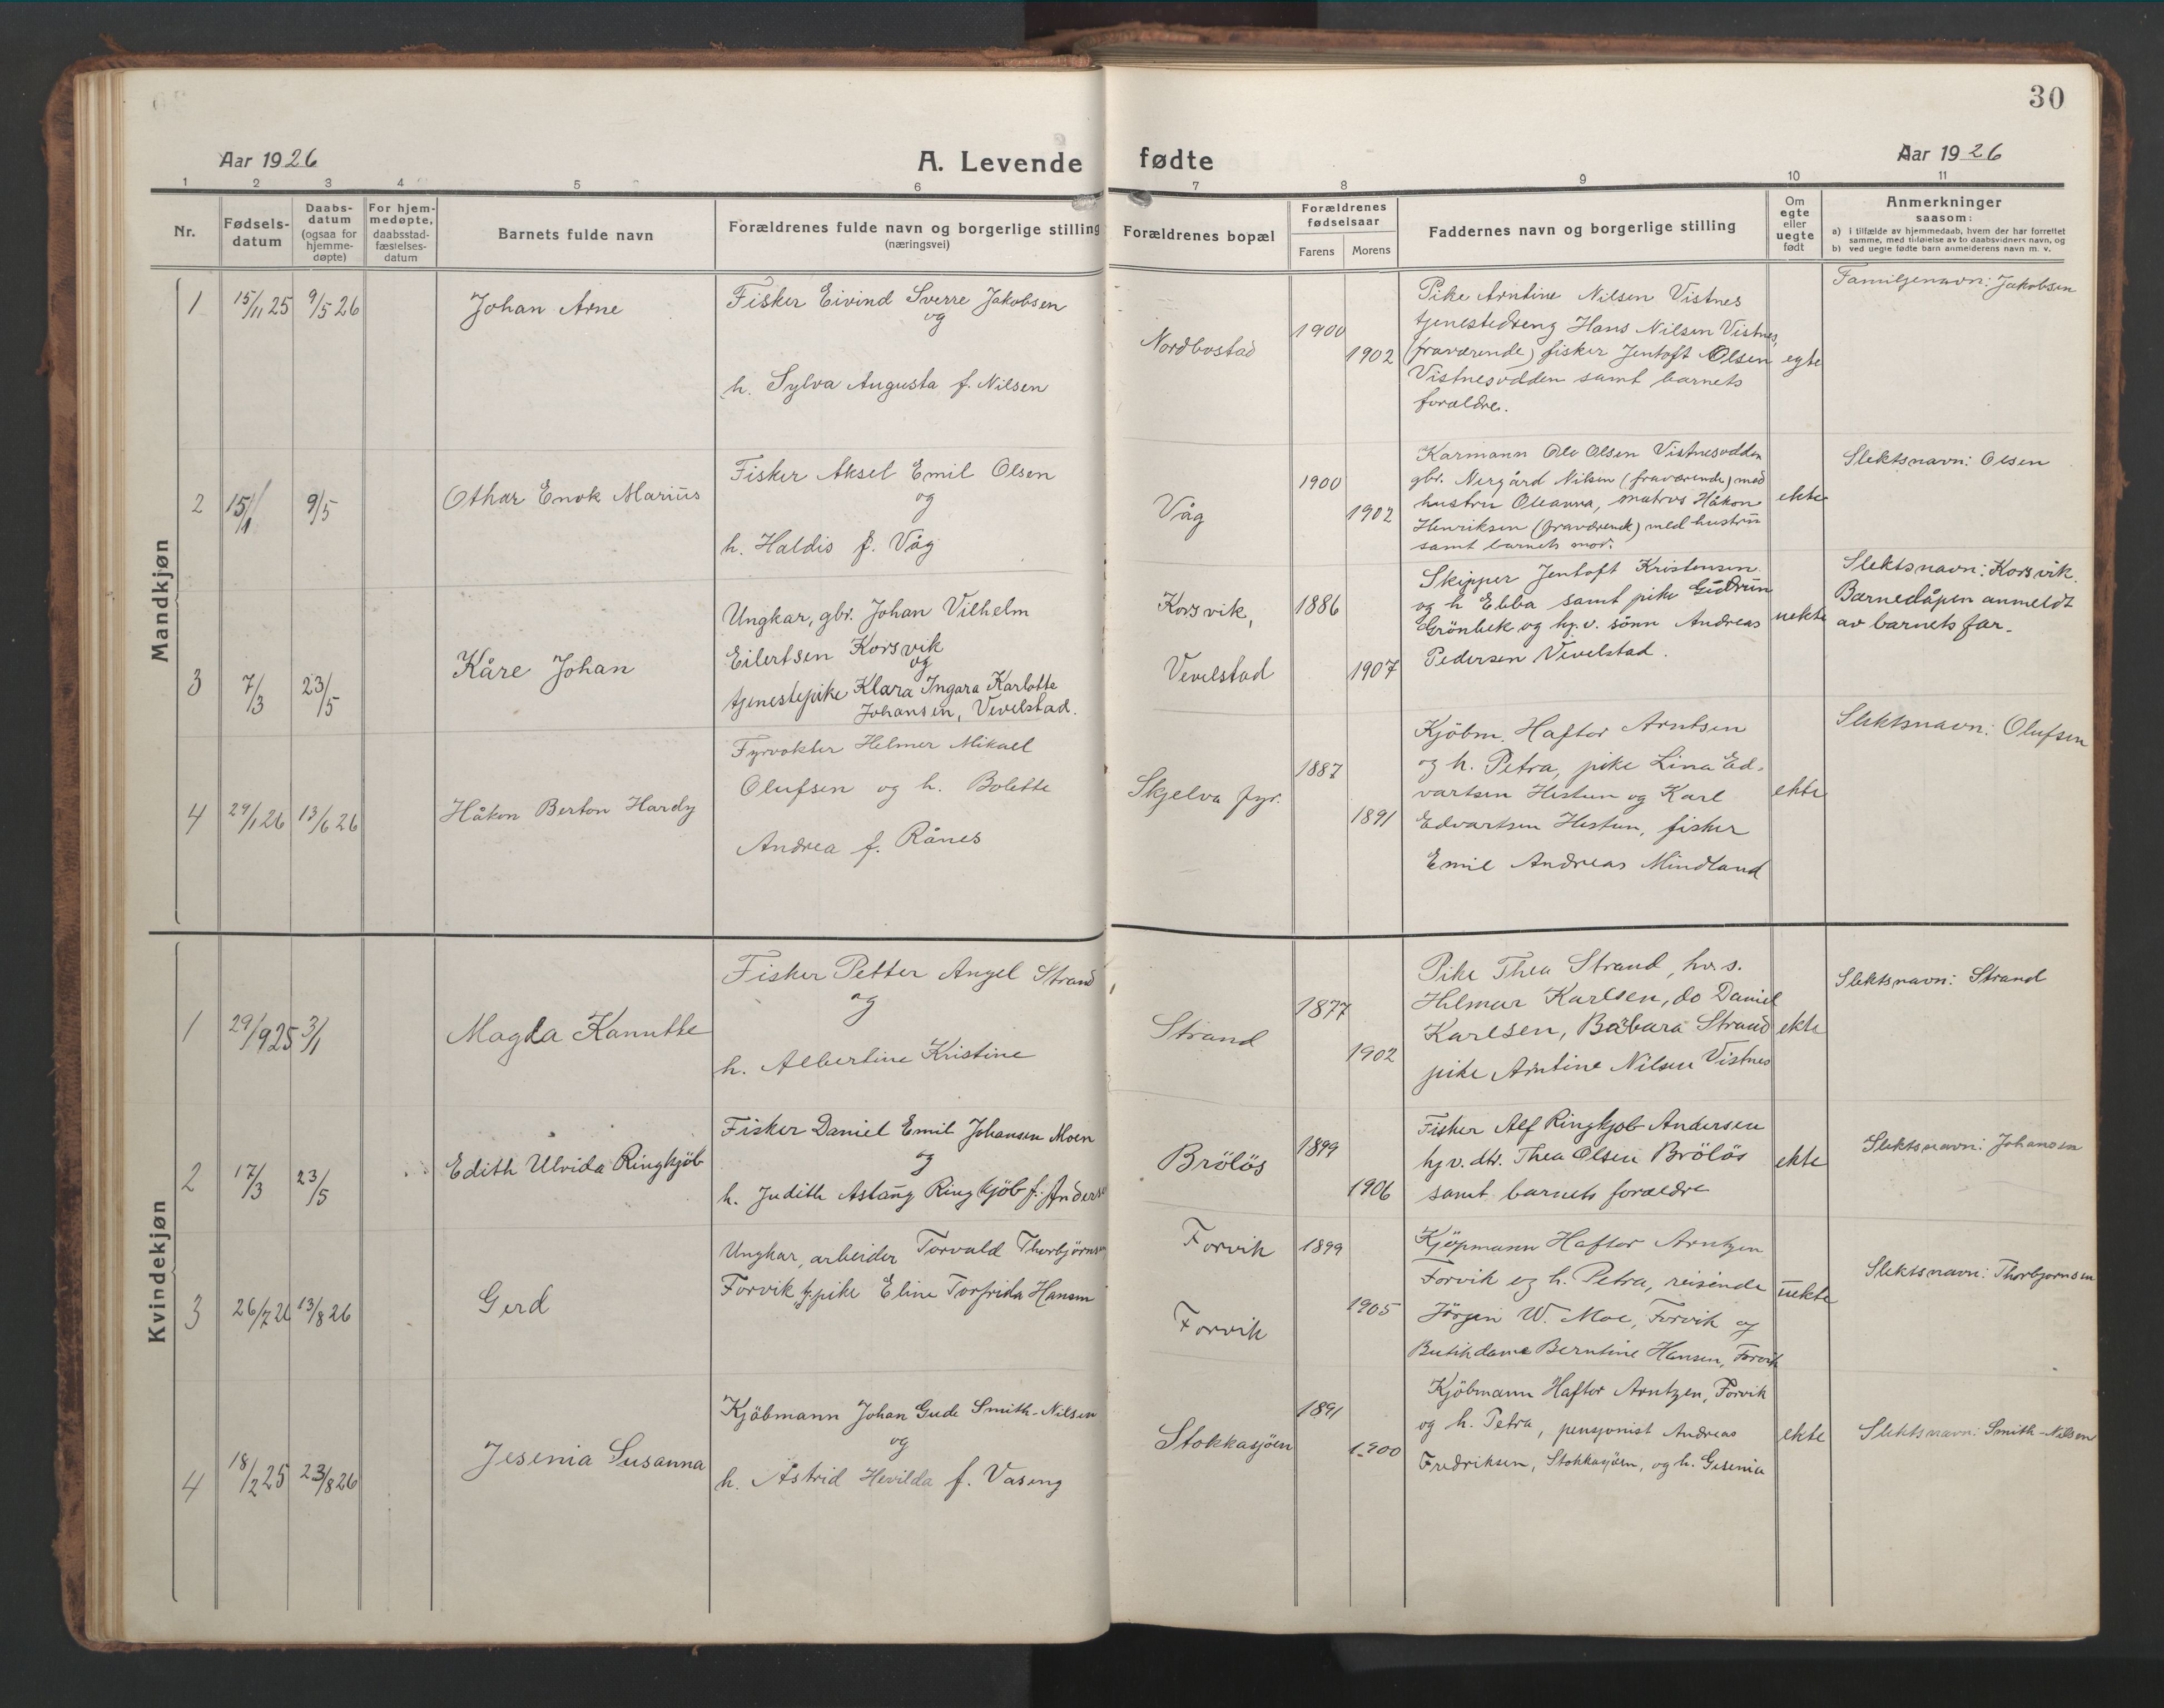 30
Aar 1926
A. Levende fødte
Aar 1926
1 2 3 4 5 6 7 8 9 10 11
Nr.
Fødsels-
datum
Daabs-
datum
(ogsaa for
hjemme-
døpte)
For hjem-
medøpte,
daabsstad-
fæstelses-
datum
Barnets fulde navn
Forældrenes fulde navn og borgerlige stilling
(næringsvei)
Forældrenes bopæl
Forældrenes
fødselsaar
Farens Morens
Faddernes navn og borgerlige stilling
Om
egte
eller
uegte
født
Anmerkninger
saasom:
a) i tilfælde av hjemmedaab, hvem der har forrettet
samme, med tilføielse av to daabsvidners navn, og
b) ved uegte fødte barn anmelderens navn m. v.
Mandkjøn
1
15/11 25
9/5 26
Johan Arne
Fisker Eivind Sverre Jakobsen
og
h. Sylva Augusta f. Nilsen
Nordbostad
1900
1902
Pike Arntine Nilsen Vistnes
tjenestedreng Hans Nilsen Vistnes,
(fraværende) fisker Jentoft Olsen
Vistnesodden samt barnets
forældre.
egte
Familjenavn: Jakobsen
2
15/1
9/5
Othar Enok Marius
Fisker Aksel Emil Olsen
og
h. Haldis f. Våg
Våg
1900
1902
Karmann Ole Olsen Vistnesodden
gbr. Nergård Nilsen (fraværende) med
hustru Oleanna, matros Håkon
Henriksen (fraværende) med hustru
samt barnets mor.
ekte
Slektsnavn: Olsen
3
7/3
23/5
Kåre Johan
Ungkar, gbr. Johan Vilhelm
Eilertsen Korsvik
og
tjenestepike Klara Ingara Karlotte
Johansen, Vevelstad.
Korsvik,
Vevelstad
1886
1907
Skipper Jentoft Kristensen
og h Ebba samt pike Gudrun
Grönbek og hj.v. sönn Andreas
Pedersen Vevelstad.
uekte
Slektsnavn: Korsvik.
Barnedåpen anmeldt
av barnets far.
4
29/1 26
13/6 26
Håkon Berton Hardy
Fyrvokter Helmer Mikael
Olufsen og h. Bolette
Andrea f. Rånes
Skjelva fyr.
1887
1891
Kjöbm. Haftor Arntsen
og h. Petra, pike Lina Ed-
vartsen Hestun og Karl
Edvartsen Hestun, fisker
Emil Andreas Mindland
ekte
Slektsnavn: Olufsen
Kvindekjøn
1
29/9 25
3/1
Magda Kanutte
Fisker Petter Angel Strand
og
h. Albertine Kristine
Strand
1877
1902
Pike Thea Strand, hv. s.
Hilmar Karlsen, do Daniel
Karlsen, Babara Strand
pike Arntine Nilsen Vistnes
ekte
Slektsnavn: Strand
2
17/3
23/5
Edith Ulvida Ringkjöb
Fisker Daniel Emil Johansen Moen
og
h. Judith Aslaug Ringkjöb f. Anders
Brölös
1899
1906
Fisker Alf Ringkjob Andersen
hj v. dtr. Thea Olsen Brölös
samt barnets forældre
ekte
Slektsnavn: Johansen
3
26/7 26
13/8 26
Gerd
Ungkar, arbeider Torvald Thorbjörnsen
Forvik tj. pike Eline Torfrida Hansen
Forvik
Forvik
1899
1905
Kjöpmann Haftor Arntzen
Forvik og h. Petra, reisende
Jörgen W. Moe, Forvik og
Butikdame Berntine Hansen, Forvik
uekte
Slektsnavn: Thorbjornsen
4
18/2 25
23/8 26
Jesenia Susanna
Kjöbmann Johan Gude Smith-Nilsen
og
h. Astrid Hevilda f. Vaseng
Stokkasjöen
1891
1900
Kjöbmann Haftor Arntzen, Forvik
og h. Petra, pensjonist Andreas
Fredriksen, Stokkasjöen, og h. Gesenia
ekte
Slektsnavn: Smith-Nilsen